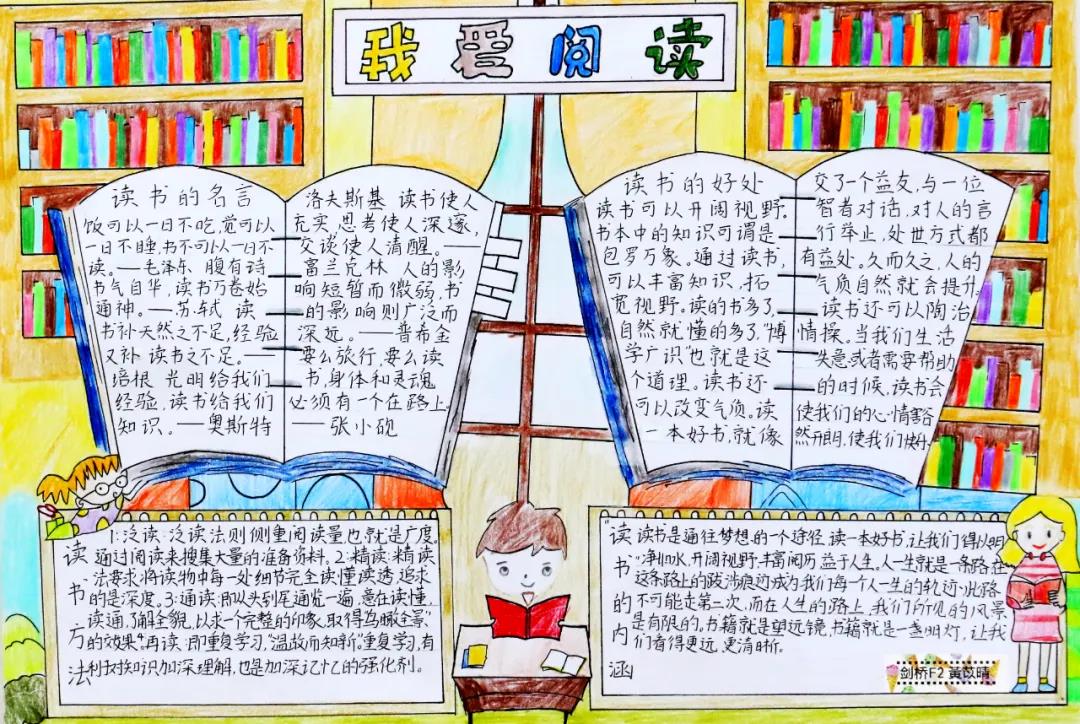 我爱阅读
读书的名言
饭可以一日不吃,觉可以
一日不睡,书不可以一日不
读。——毛泽东 腹有诗
书气自华,读书万卷始
通神。——苏轼 读
书补天然之不足,经验
又补读书之不足。——
培根 光明给我们
经验,读书给我们
知识。——奥斯特
洛夫斯基 读书使人
充实,思考使人深邃,
交谈使人清醒。——
富兰克林 人的影
响短暂而微弱,书
的影响则广泛而
深远。——普希金
要么旅行,要么读
书,身体和灵魂
必须有一个在路上
——张小砚
读书的好处
读书可以开阔视野。
书本中的知识可谓是
包罗万象。通过读书,
可以丰富知识,拓
宽视野。读的书多了,
自然就懂的多了,“博
学广识”也就是这
个道理。读书还
可以改变气质。读
一本好书,就像
交了一个益友,与一位
智者对话,对人的言
行举止,处世方式都
有益处。久而久之,人的
气质自然就会提升。
读书还可以陶冶
情操。当我们生活
失意或者需要帮助
的时候,读书会
使我们的心情豁
然开朗,使我们快乐。
读书方法
1:泛读:泛读法则侧重阅读量也就是广度。
通过阅读来搜集大量的准备资料。2:精读:精读
法要求将读物中每一处细节完全读懂读透,追求
的是深度。3:通读:即从头到尾通览一遍,意在读懂,
读通,了解全貌,以求一个完整的印象,取得“鸟瞰全景”
的效果”。再读:即重复学习,“温故而知新”。重复学习,有
利于对知识加深理解,也是加深记忆的强化剂。
“读书”的内涵
读书是通往梦想的一个途径,读一本好书,让我们得以明
净如水,开阔视野,丰富阅历,益于人生。人一生就是一条路,在
这条路上的跋涉痕迹成为我们每个人一生的轨迹,此路
不可能走第二次,而在人生的路上,我们所见的风景
是有限的,书籍就是望远镜,书籍就是一盏明灯,让我
们看得更远,更清晰。
剑桥F2 黄苡晴